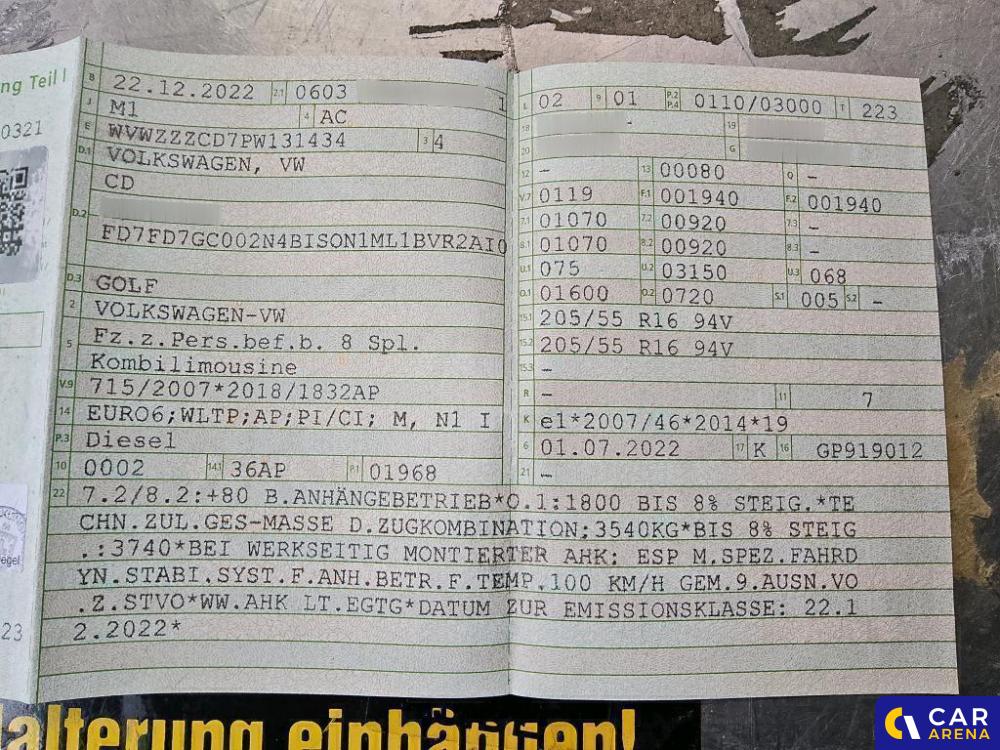 ng Teil I
0321
23
B 22.12.2022 2.1 0603 1
J M1 4 AC
E WVWZZZCD7PW131434 3 4
D.1 VOLKSWAGEN, VW
CD
D.2
FD7FD7GC002N4BISON1ML1BVR2AI0
D.3 GOLF
2 VOLKSWAGEN-VW
5 Fz.z.Pers.bef.b. 8 Spl.
Kombilimousine
V.9 715/2007*2018/1832AP
14 EURO6;WLTP;AP;PI/CI; M, N1 I
P.3 Diesel
10 0002 14.1 36AP P.1 01968
L 02 9 01 P.2 P.4 0110/03000 T 223
18 - 19
20 G
12 - 13 00080 Q -
V.7 0119 F.1 001940 F.2 001940
7.1 01070 7.2 00920 7.3 -
8.1 01070 8.2 00920 8.3 -
U.1 075 U.2 03150 U.3 068
O.1 01600 O.2 0720 S.1 005 S.2 -
15.1 205/55 R16 94V
15.2 205/55 R16 94V
15.3 -
R 11 7
K e1*2007/46*2014*19
6 01.07.2022 17 K 16 GP919012
21 -
22 7.2/8.2:+80 B.ANHÄNGEBETRIEB*O.1:1800 BIS 8% STEIG.*TE
CHN.ZUL.GES-MASSE D.ZUGKOMBINATION;3540KG*BIS 8% STEIG
.:3740*BEI WERKSEITIG MONTIERTER AHK: ESP M.SPEZ.FAHRD
YN.STABI.SYST.F.ANH.BETR.F.TEMP.100 KM/H GEM.9.AUSN.VO
.Z.STVO*WW.AHK LT.EGTG*DATUM ZUR EMISSIONSKLASSE: 22.1
2.2022*
alterung einhängen!
CAR
ARENA